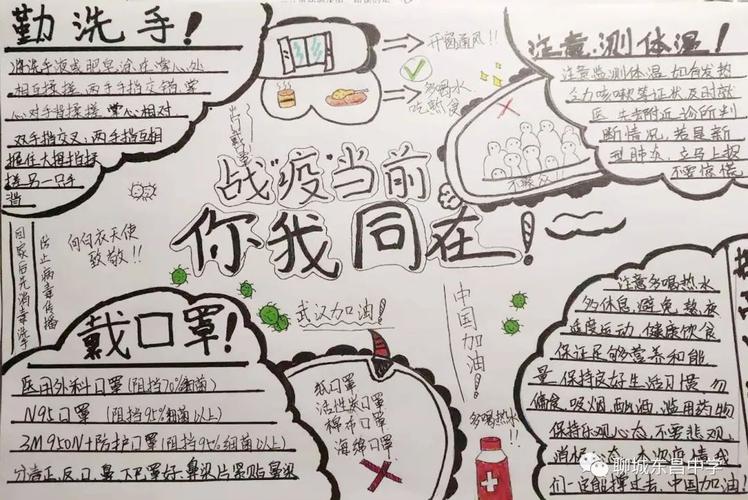 勤洗手!
将洗手液或肥皂涂在掌心处
相互揉搓,两手手指交错,掌
心对手背揉搓,掌心相对
双手指交叉,两手手指互相
握住大拇指揉
搓另一只手
开窗通风!!
多喝水
吃熟食
不聚众!!
注意,测体温!
注意监测体温,如有发热
乏力咳嗽等症状及时就
医,去附近诊所判
断情况,若是新
型肺炎,立马上报
不要惊慌
战"疫"当前
你我同在!
向白衣天使
致敬!!
防止病毒传播
回家后先消毒洗手
武汉加油!
中国加油!
戴口罩!
医用外科口罩(阻挡70%细菌)
N95口罩 (阻挡95%细菌以上)
3M950N+防护口罩(阻挡95%细菌以上)
分清正,反,口,鼻,下巴罩好,鼻梁片紧贴鼻梁
纸口罩
活性炭口罩
棉布口罩
海绵口罩
多喝热水
注意多喝热水
多休息,避免熬夜
适度运动,健康饮食
保证足够营养和能
量,保持良好生活习惯,勿
偏食,吸烟,酗酒,滥用药物
保持乐观心态,不要悲观,
们一定能撑过去,中国加油!
聊城东昌中学